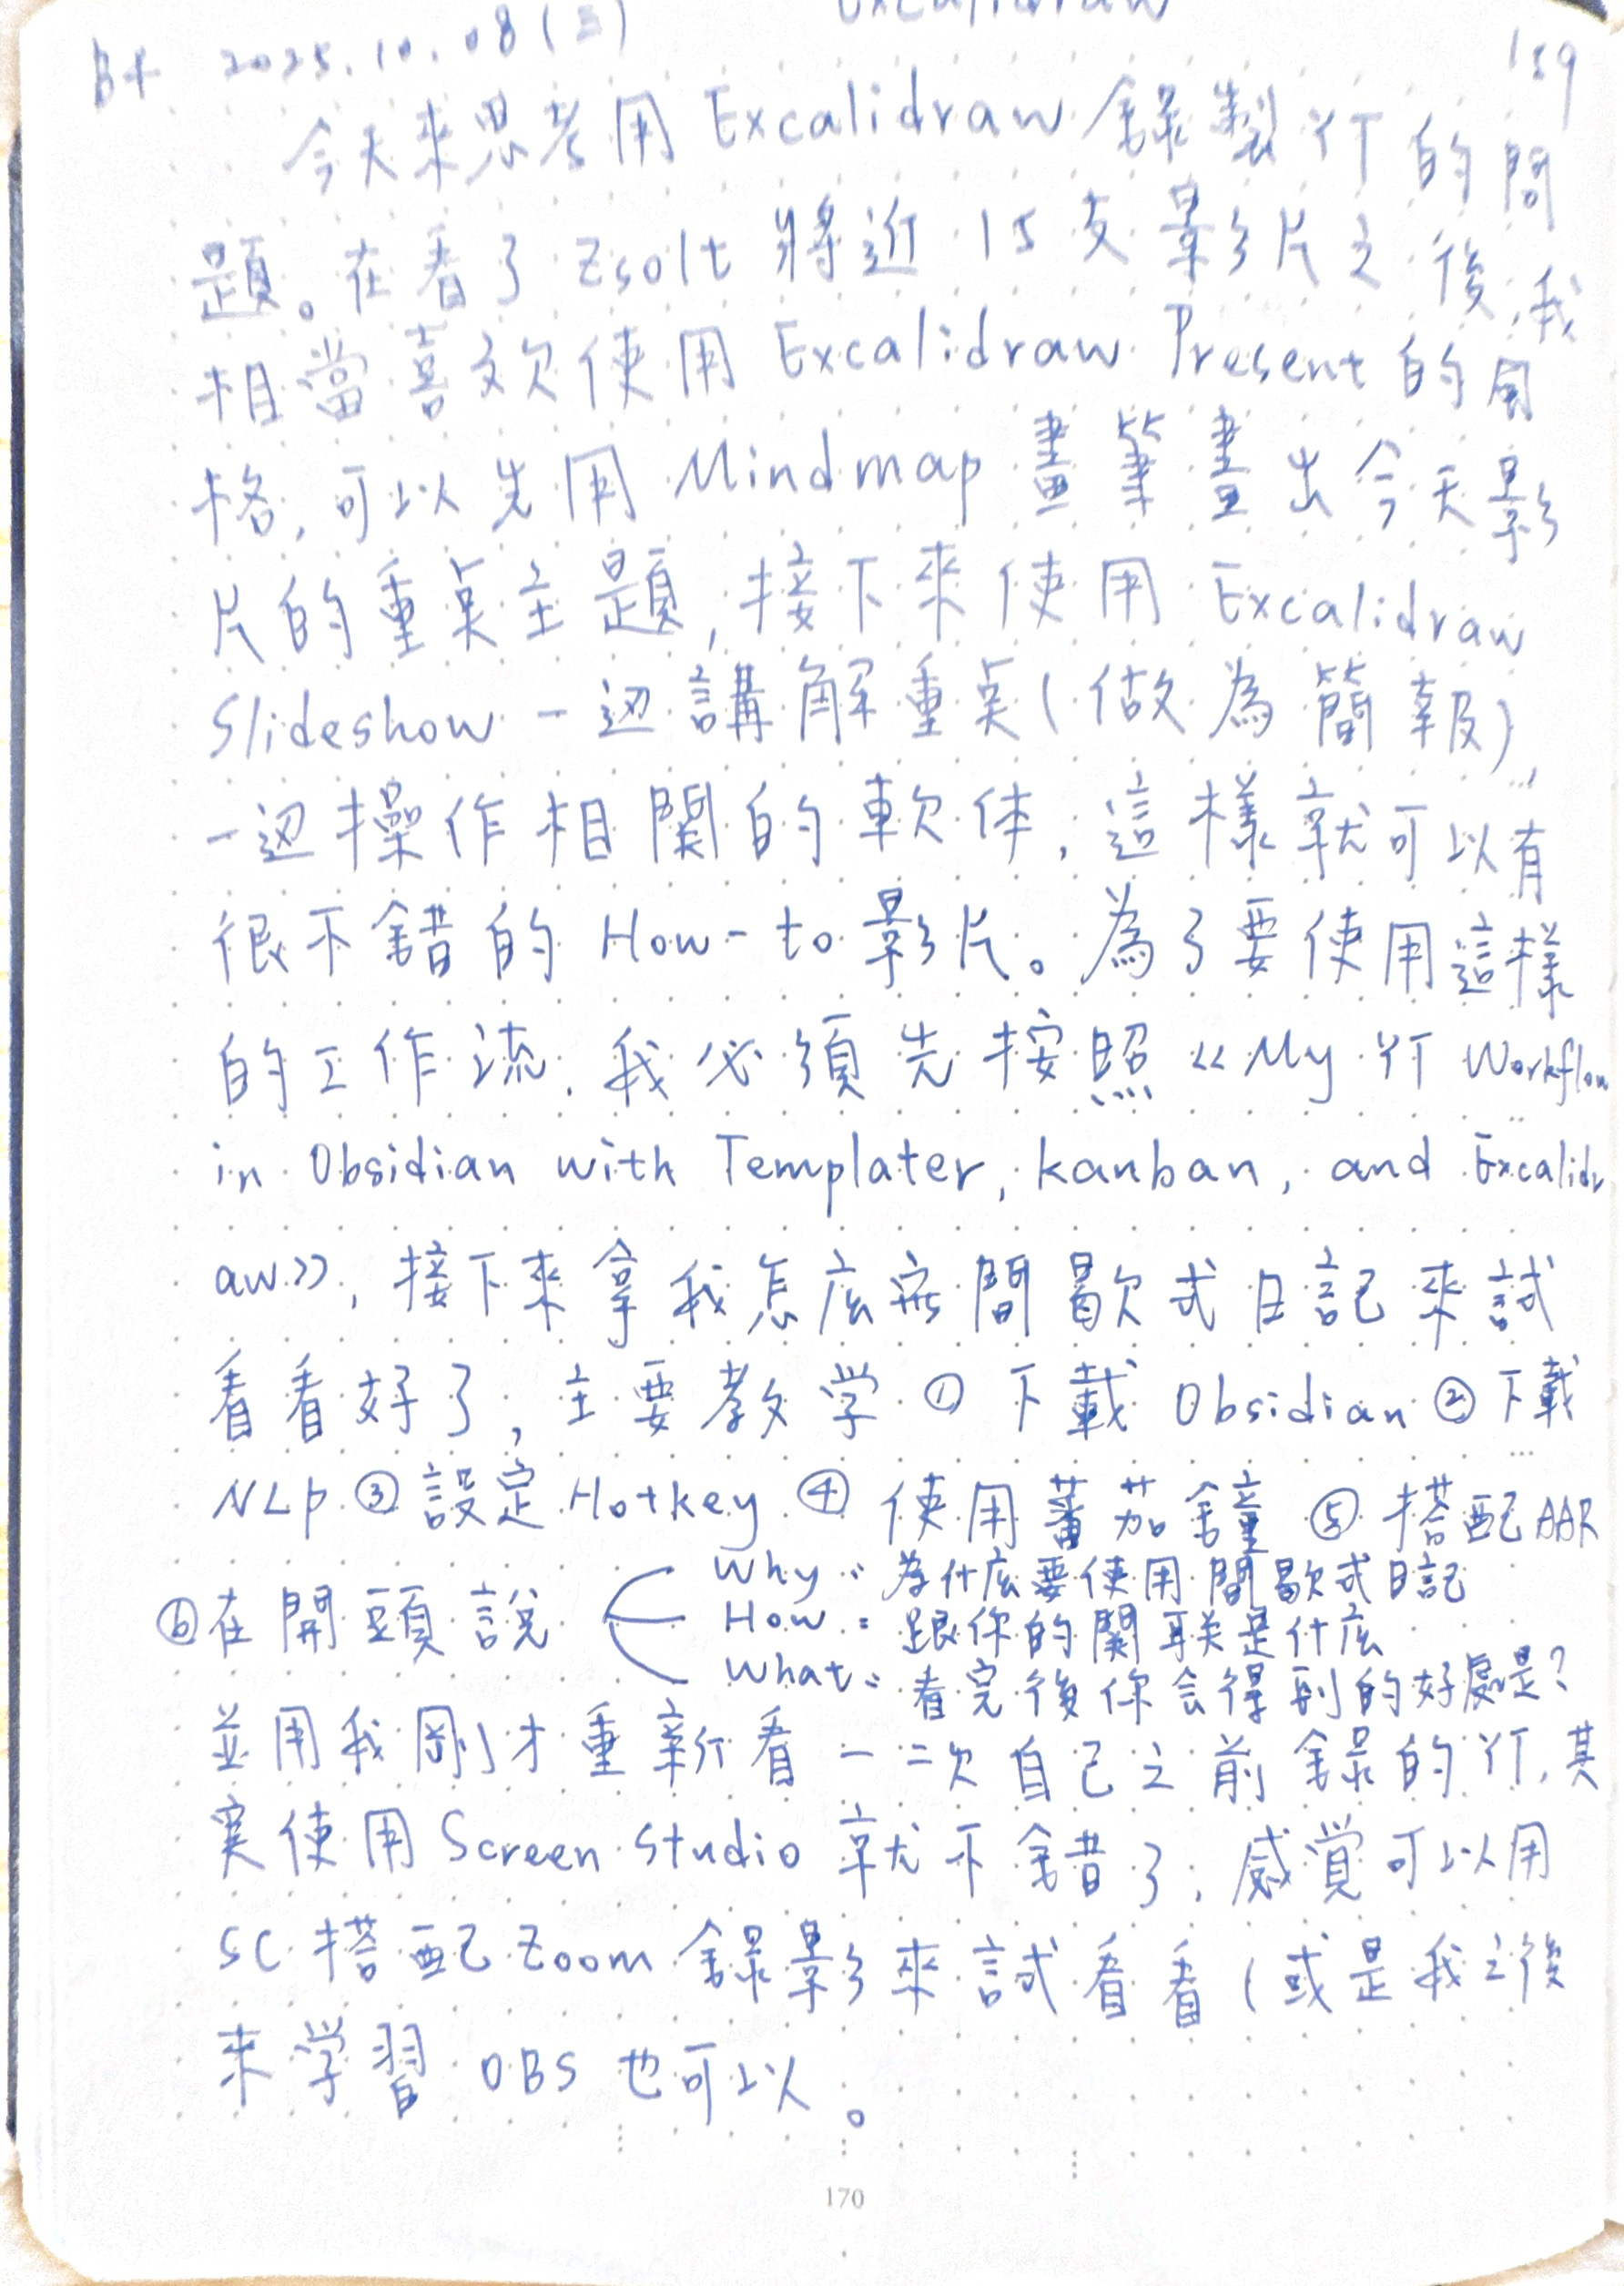 Excalidraw
B+ 2025.10.08(三) 159
今天來思考用 Excalidraw 錄製 YT 的問
題。在看了 Zsolt 將近 15 支影片之後,我
相當喜欢使用 Excalidraw Present 的風
格,可以先用 Mindmap 畫筆畫出今天影
片的重点主題,接下來使用 Excalidraw
Slideshow 一边講解重点(做為簡報),
一边操作相関的軟体,這樣就可以有
很不錯的 How-to 影片。為了要使用這樣
的工作流,我必須先按照《My YT Workflow
in Obsidian with Templater, kanban, and Excalidr
aw》,接下來拿我怎庅寫間歇式日記來試
看看好了,主要教学 ① 下載 Obsidian ② 下載
NLP ③ 設定 Hotkey ④ 使用蕃茄鐘 ⑤ 搭配 AAR
⑥在開頭說
Why: 為什庅要使用間歇式日記
How: 跟你的関联是什庅
What: 看完後你会得到的好處是?
並用我剛才重新看一次自己之前錄的YT,其
実使用 Screen studio 就不錯了,感覚可以用
SC 搭配 Zoom 錄影來試看看(或是我之後
來学習 OBS 也可以。
170